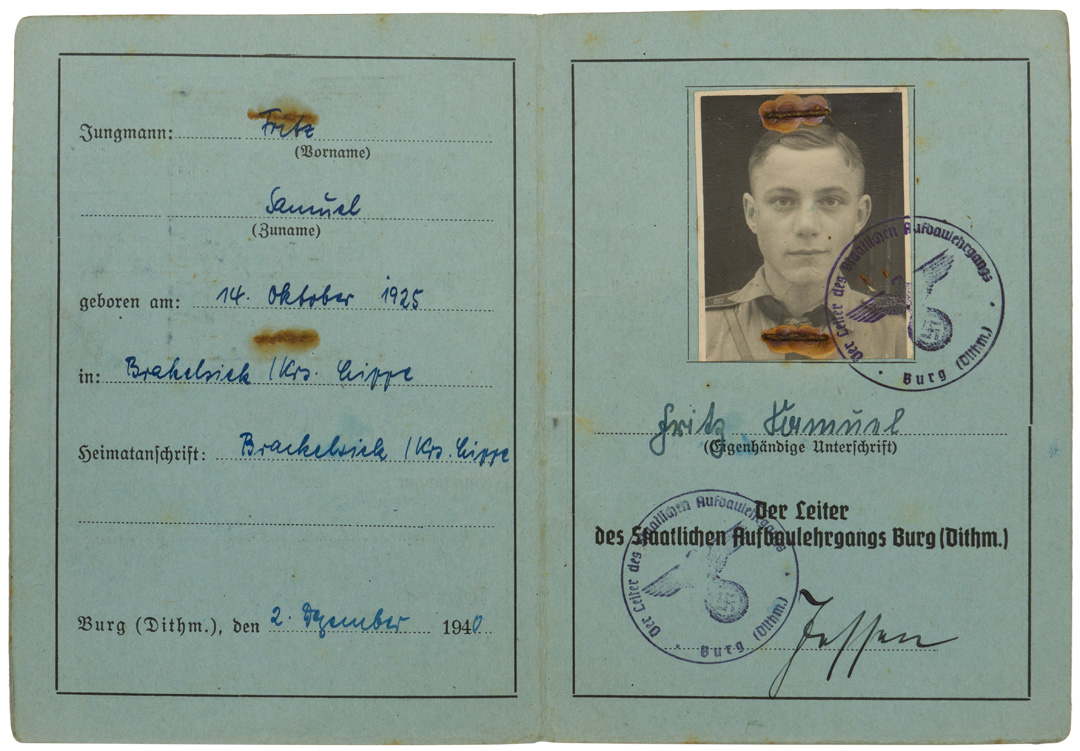 Jungmann: Fritz
(Vorname)
Samuel
(Zuname)
geboren am: 14. Oktober 1925
in: Brakelsiek /Krs. Lippe
Heimatanschrift: Brackelsiek /Krs. Lippe
Burg (Dithm.), den 2. Dezember 1940
Der Leiter des Staatlichen Aufbaulehrgangs
Burg (Dithm.)
Fritz Samuel
(Eigenhändige Unterschrift)
Der Leiter
des Staatlichen Aufbaulehrgangs Burg (Dithm.)
Der Leiter des Staatlichen Aufbaulehrgangs
Burg (Dithm.)
Jessen